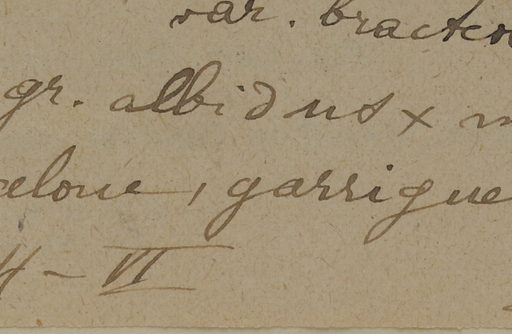 var. bracteo
gr. albidus x m
alone, garrigue
4 - VI